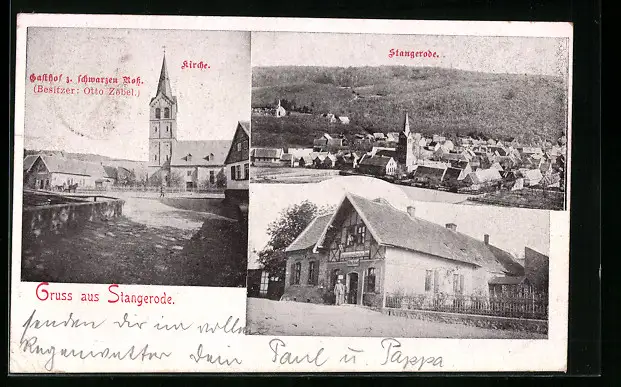 Gasthof z. schwarzen Roß.
(Besitzer: Otto Zöbel.)
Kirche.
Stangerode.
Gruss aus Stangerode.
senden dir im vollen
Regenwetter Dein Paul u. Pappa